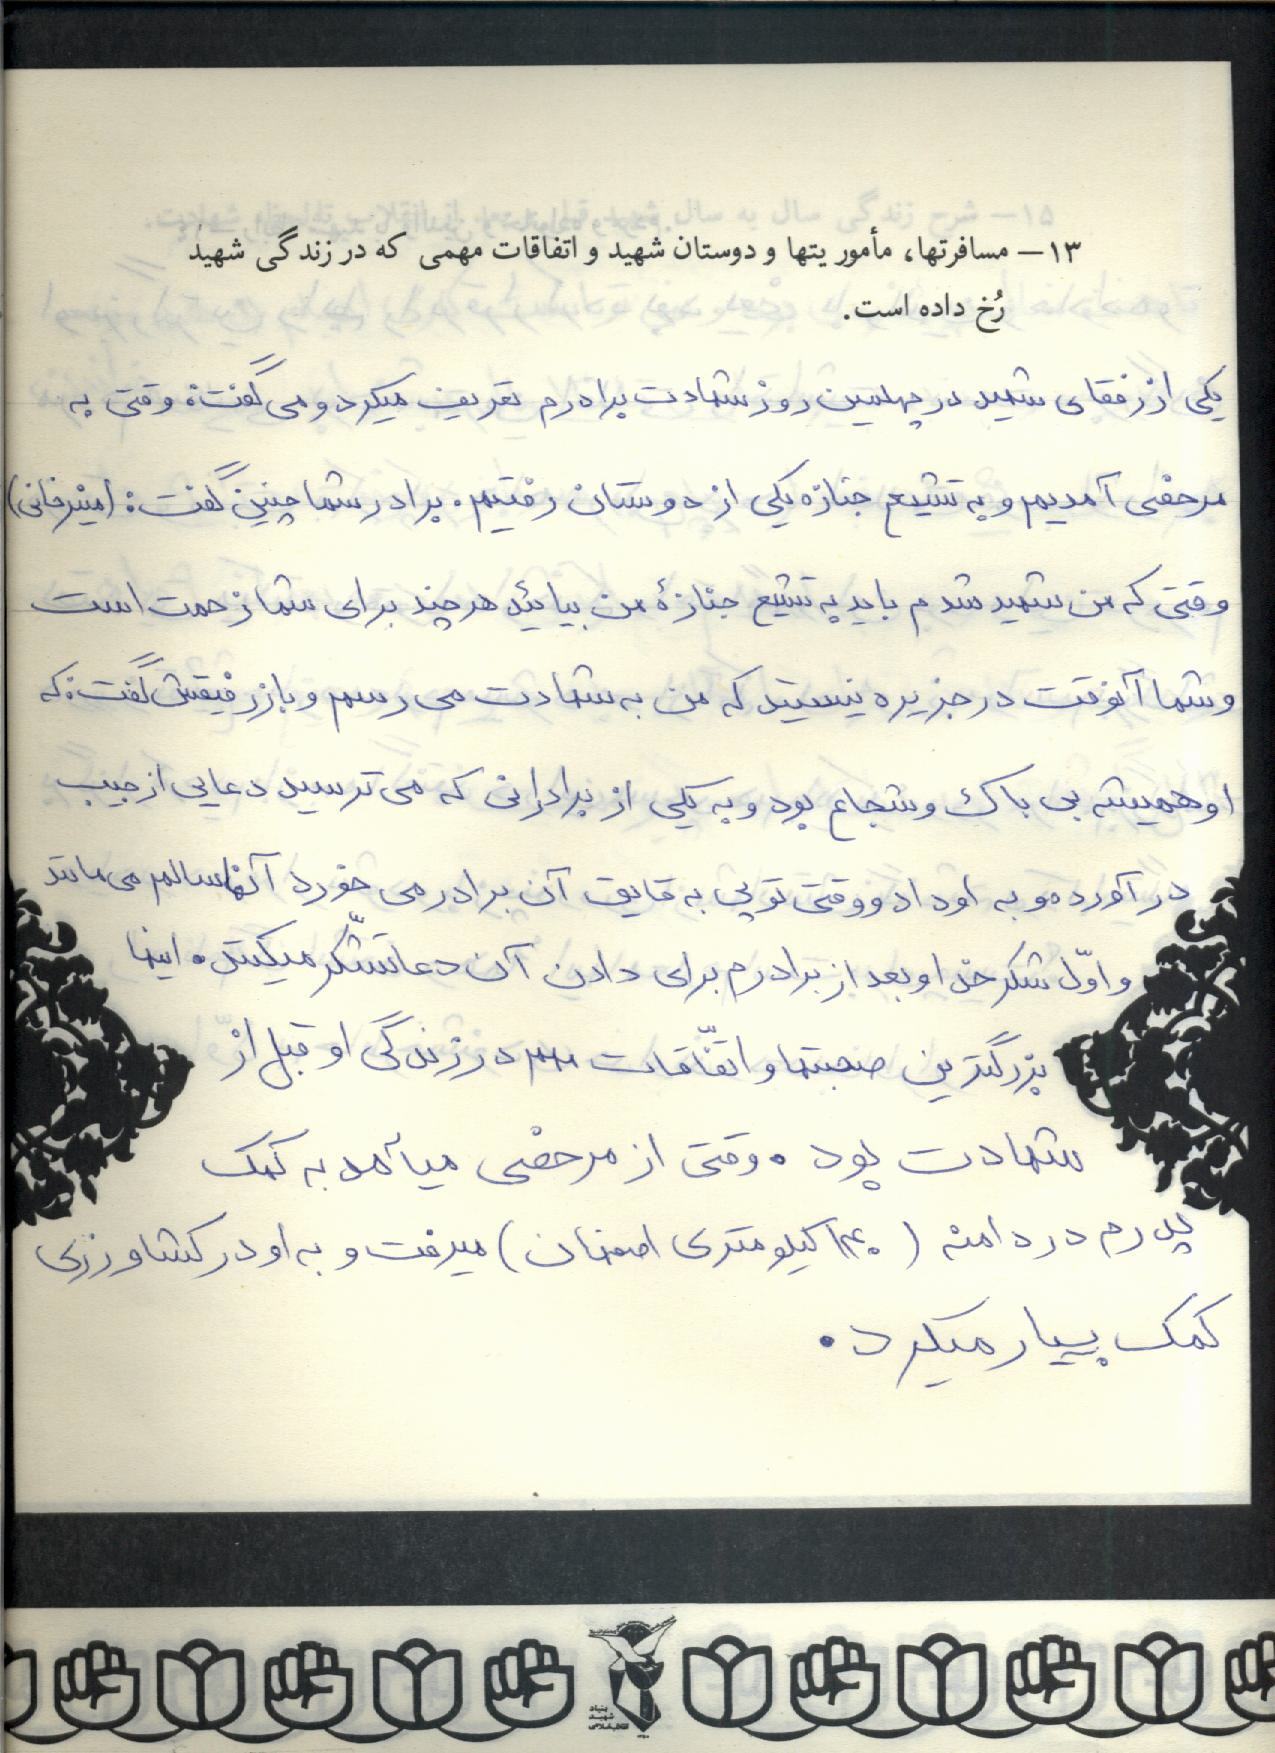 ۱۳– مسافرتها، مأموریتها و دوستان شهید و اتفاقات مهمی که در زندگی شهید
رُخ داده است.
یکی از رفقای شهید در چهلمین روز شهادت برادرم تعریف میکرد و می گفت: وقتی به
مرخصی آمدیم و به تشییع جنازه یکی از دوستان رفتیم. برادر شما چنین گفت: (امینرخانی)
وقتی که من شهید شدم باید به تشیع جنازهٔ من بیایید هر چند برای شما زحمت است
و شما آنوقت در جزیره نیستید که من به شهادت می رسم و باز رفیقش گفت: که
او همیشه بی باک و شجاع بود و به یکی از برادرانی که می ترسید دعایی از جیب
در آورده و به او داد و وقتی توپی به قایق آن برادر می خورد آنها سالم می مانند
و اوّل شکر خدا و بعد از برادرم برای دادن آن دعا تشّکر میکنند. اینها
بزرگترین صحبتها و اتّفاقات مهم در زندگی او قبل از
شهادت بود. وقتی از مرخصی میآمد به کمک
پدرم در دامنه (۱۴۰ کیلومتری اصفهان) میرفت و به او در کشاورزی
کمک بسیار میکرد.
بنیاد
شهید
انقلاب اسلامی